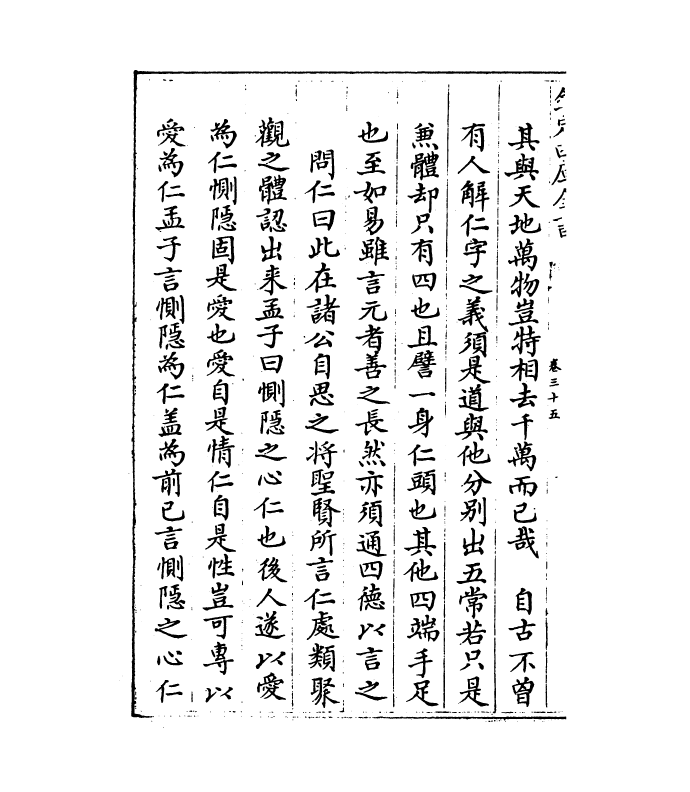 欽定四庫全書
卷三十五
其與天地萬物豈特相去千萬而已哉　自古不曽
有人解仁字之義須是道與他分别出五常若只是
兼體却只有四也且譬一身仁頭也其他四端手足
也至如易雖言元者善之長然亦須通四徳以言之
問仁曰此在諸公自思之将聖賢所言仁處類聚
觀之體認出来孟子曰惻隠之心仁也後人遂以愛
為仁惻隠固是愛也愛自是情仁自是性豈可專以
愛為仁孟子言惻隠為仁盖為前已言惻隠之心仁